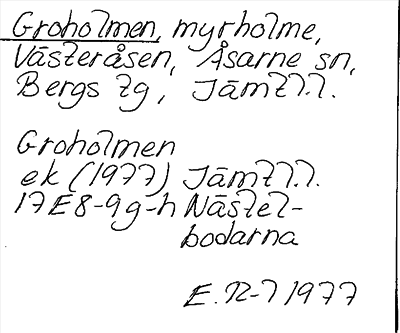 Groholmen, myrholme,
Västeråsen, Åsarne sn,
Bergs tg, Jämtl.l.
Groholmen
ek (1977) Jämtl.l.
17E8-9g-h Nästel-
bodarna
E.N-l 1977